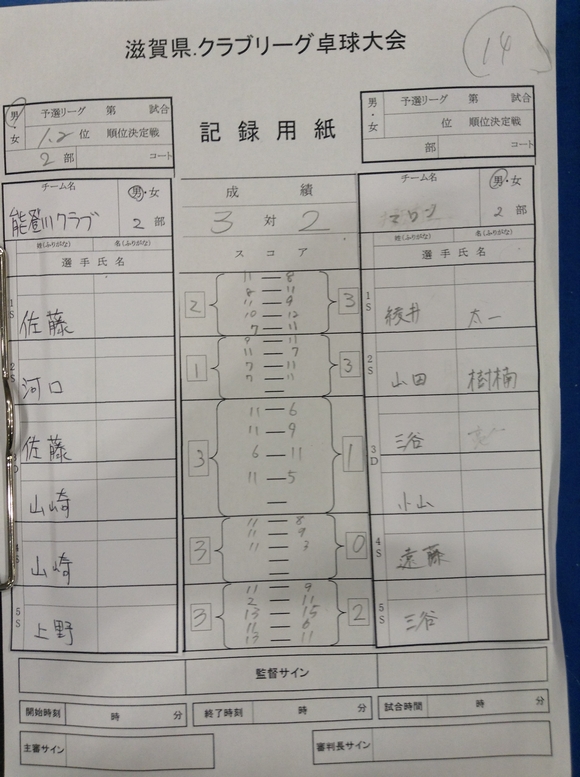 14
滋賀県.クラブリーグ卓球大会
記録用紙
男・女
予選リーグ 第 試合
1.2位 順位決定戦
2部 コート
男・女
予選リーグ 第 試合
位 順位決定戦
部 コート
チーム名 男・女
能登川クラブ 2部
姓(ふりがな) 名(ふりがな)
選手氏名
成績
3対2
スコア
チーム名 男・女
マロン 2部
姓(ふりがな) 名(ふりがな)
選手氏名
1S 佐藤
2
11 — 8
8 — 11
11 — 9
10 — 12
7 — 11
3
1S 綾井 太一
2S 河口
1
9 — 11
11 — 7
7 — 11
7 — 11
3
2S 山田 樹楠
佐藤
D
山崎
3
11 — 6
11 — 9
6 — 11
11 — 5
—
1
3D
三谷
小山
4S 山崎
3
11 — 8
11 — 9
11 — 3
0
4S 遠藤
5S 上野
3
11 — 9
2 — 11
13 — 15
11 — 6
13 — 11
2
5S 三谷
監督サイン
開始時刻 時 分
終了時刻 時 分
試合時間 時 分
主審サイン
審判長サイン